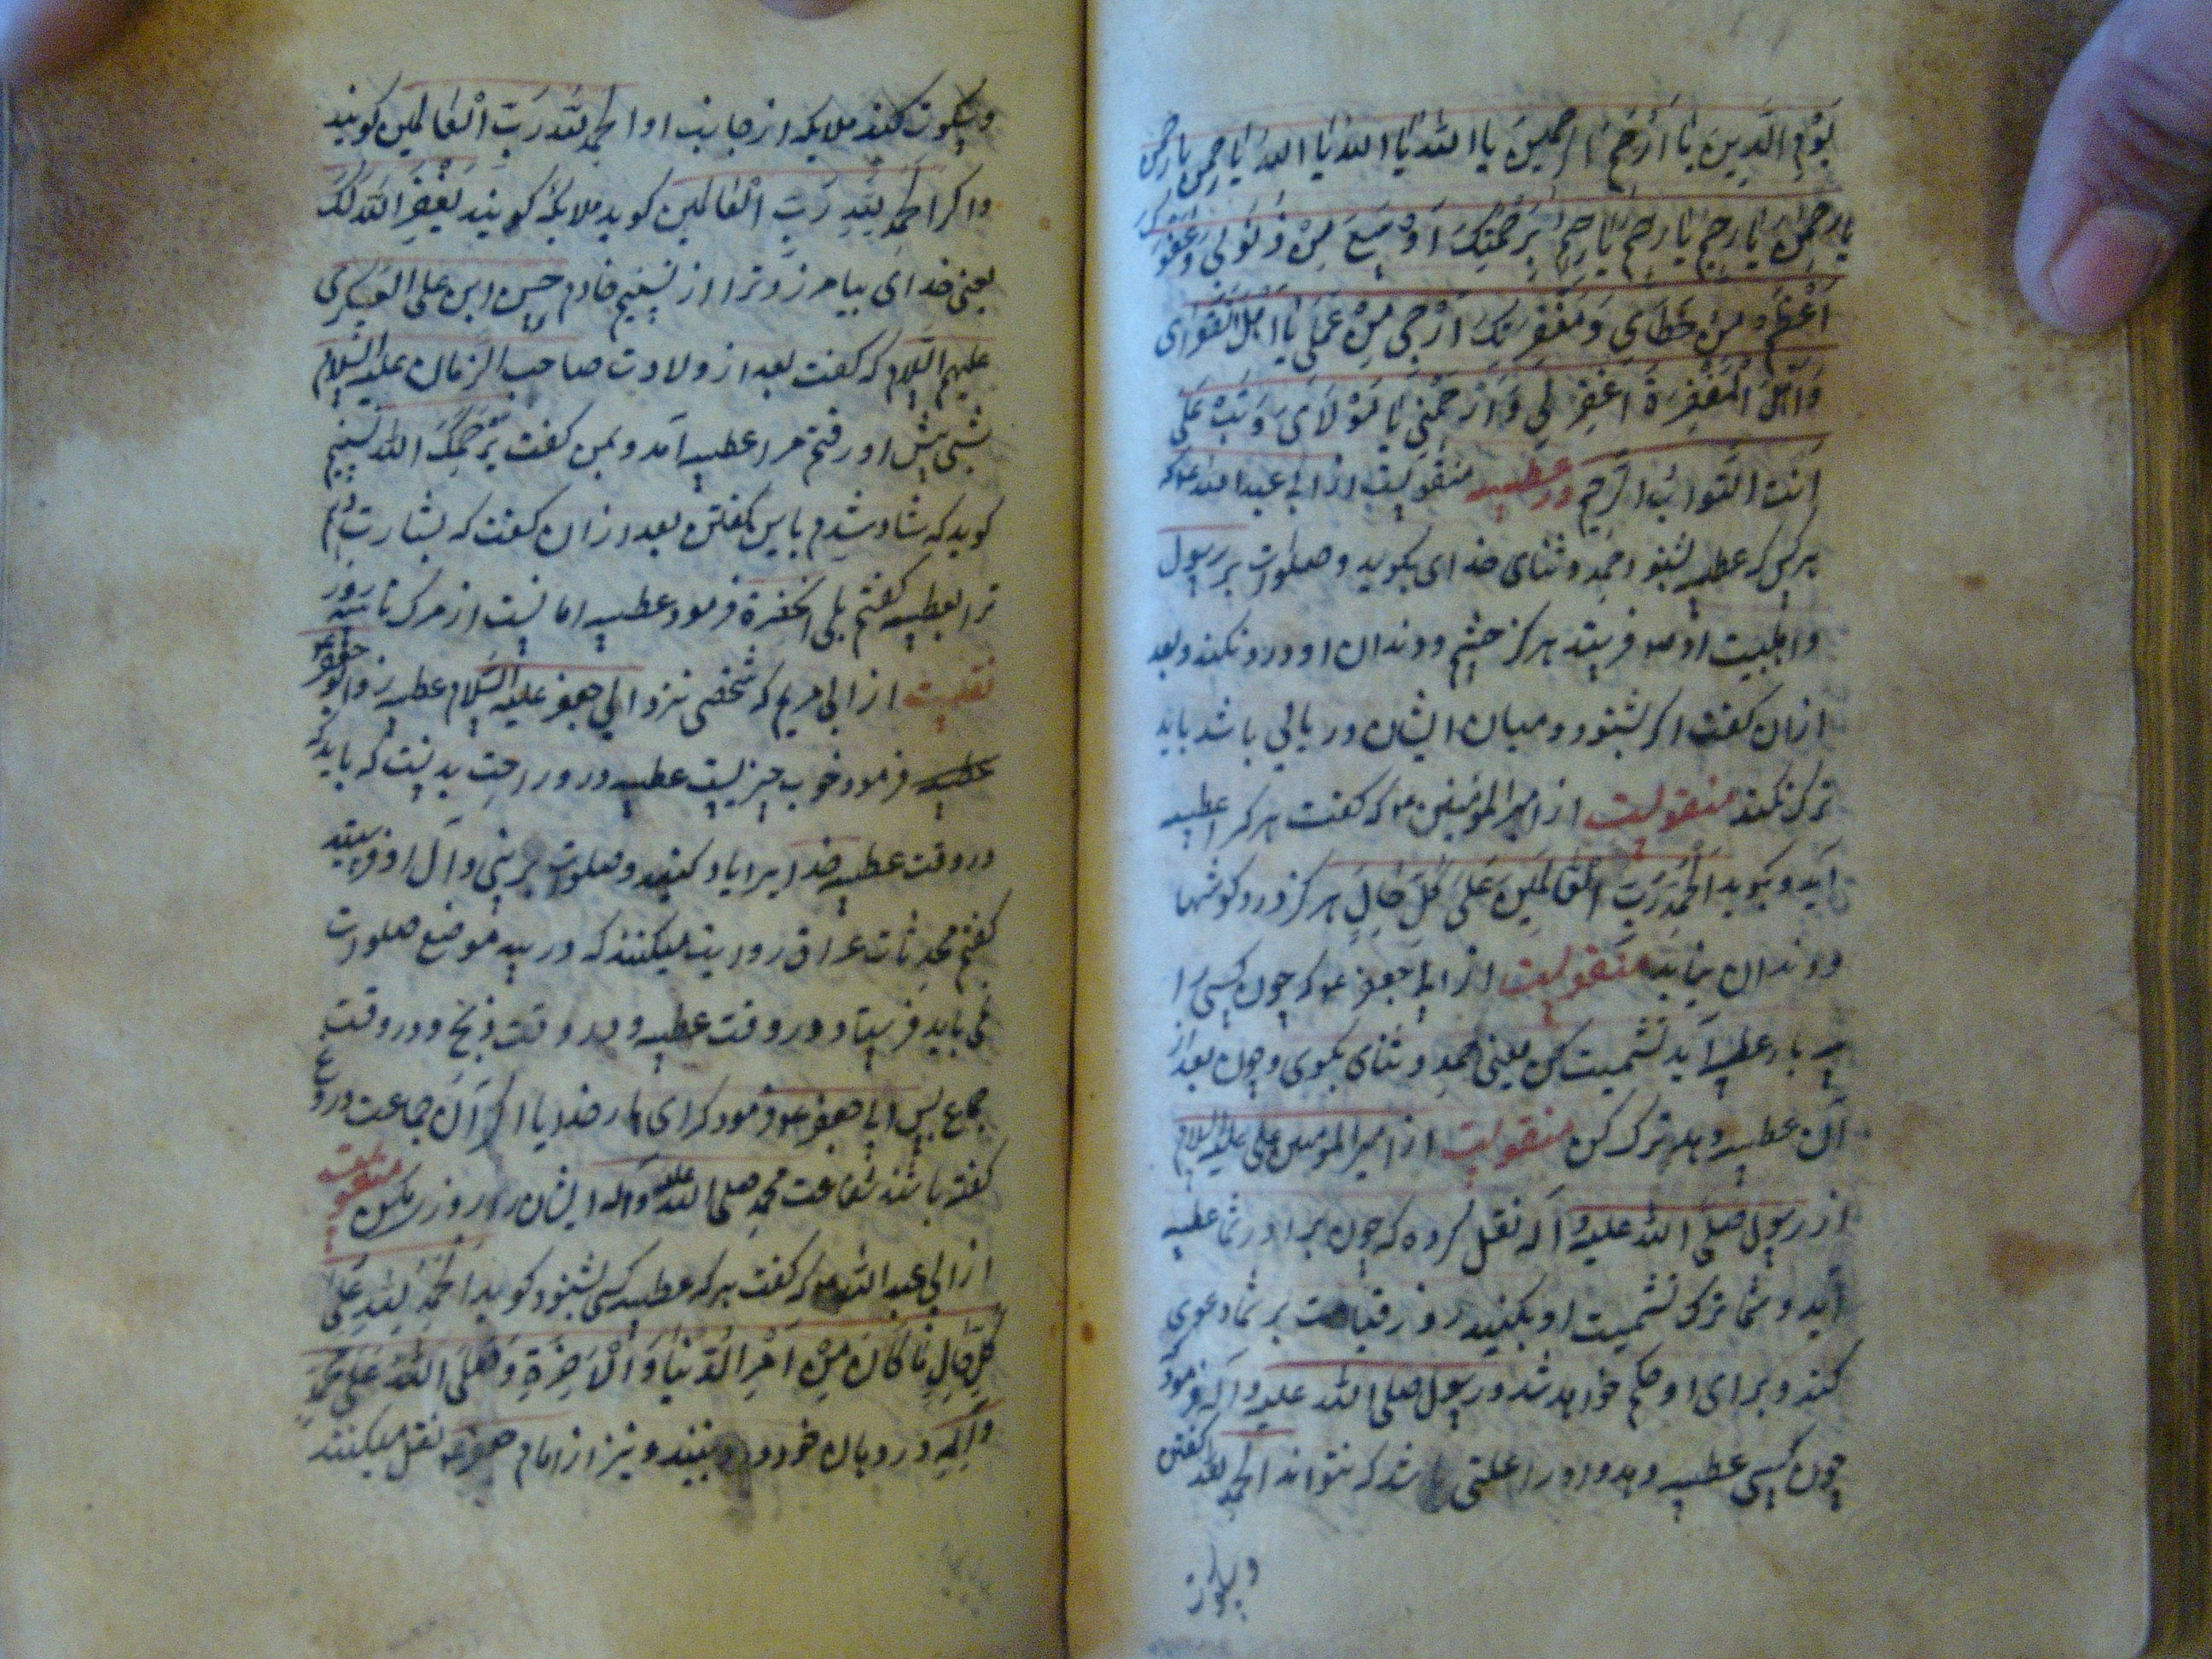 یَوْمِ الدِّینِ یَا اَرْحَمَ الرّاحِمِینَ یَا اللهُ یَا اللهُ یَا اللهُ یَا رحمن یا رحمن
یا رحمن یَا رحیم یَا رحیم یَا رحیم بِرَحْمَتِکَ اَوْسَعَ مِنْ ذُنُوبی وَ
مِنْ خَطَای وَ مَغْفِرَتِکَ اَرْجی مِنْ عَمَلی یَا اَهْلَ التَّقْوای
وَ اَهْلَ الْمَغْفِرَةِ اغْفِرْ لِی وَ ارْحَمْنی یَا مَوْلَایَ وَ تُبْ عَلَیَّ
اَنْتَ التَّوّابُ الرَّحیم در عطسه منقولیست از ابی عبدالله ع که
هر کس که عطسه بشنود حمد و ثنای خدای بکوید و صلوات بر رسول
و اهلبیت او فرستد هرکز چشم و دندان او درد نکند و بعد
ازان کفت اکر بشنود و میان ایشان دریایی باشد باید
ترک نکند منقولست از امیرالمومنین ع که کفت هر کرا عطسه
آید و بکوید الحمد رَبِّ الْعَالَمِینَ عَلَی کُلِّ حَالٍ هرکز درد کوشها
و دندان نیابد منقولست از ابا جعفر ع که چون کسی را
سه بار عطسه آید تشمیت کن یعنی حمد و ثنای بکوی و چون بعد از
آن عطسه دهد ترک کن منقولست از امیرالمومنین علی علیه السلام
از رسول صلی الله علیه و آله نقل کرده که چون برادر شما عطسه
آید و شما ترک تشمیت او بکنید روز قیامت بر شما دعوی
کند و برای او حکم خواهد شد و رسول صلی الله علیه و آله فرمود
چون کسی عطسه دهد و او را علتی باشد که نتواند الحمد لله کفتن
و سکوت
و سکوت کند ملایکه از جانب او الحمد لله رَبِّ الْعَالَمین کویند
و اکر الحمد لِلّهِ رَبِّ الْعَالَمین کوید ملایکه کویند یَغْفِرَ اللهُ لَکَ
یعنی خدای بیامرزد ترا از نسیم خادم حسن ابن علی العسکری
علیهم السلام که کفت بعد از ولادت صاحب الزمان علیه السلام
شبی پیش او رفتم مرا عطسه آمد و بمن کفت یَرْحَمُکَ الله نسیم
کوید که شاد شدم باین کفتن بعد ازان کفت که بشارت دهم
ترا بعطسه کفتم بلی فرمود عطسه امانیست از مرک تا سه روز
نقلست از ابی مریم که شخصی نزد ابی جعفر علیه السلام عطسه زد ابو جعفر
عطسه فرمود خوب چیزیست عطسه درو راحت بدنیست که باید که
در وقت عطسه خدایرا یاد کنید و صلوات بر نبی و آل او فرستید
کفتم محدثات عراق روایت میکنند که در سه موضع صلوات
نمی باید فرستاد در وقت عطسه و در وقت ذبح و در وقت
جماع پس ابا جعفر ع فرمود که ای بار خدایا اکر آن جماعت دروغ
کفته باشند شفاعت محمد صلی الله علیه و آله ایشان را روز مکن منقولست
از ابی عبدالله ع که کفت هر که عطسه کسی بشنود کوید الحمد لِلّهِ عَلی
کُلِّ حَالٍ مَا کَانَ مِنْ اَمْرِ الدُّنْیَا وَ الْاَخِرَةِ وَ صَلَّی اللهُ عَلی مُحَمَّدٍ
وَ آلِهِ در دهان خود نبیند و نیز از امام جعفر ع نقل میکنند